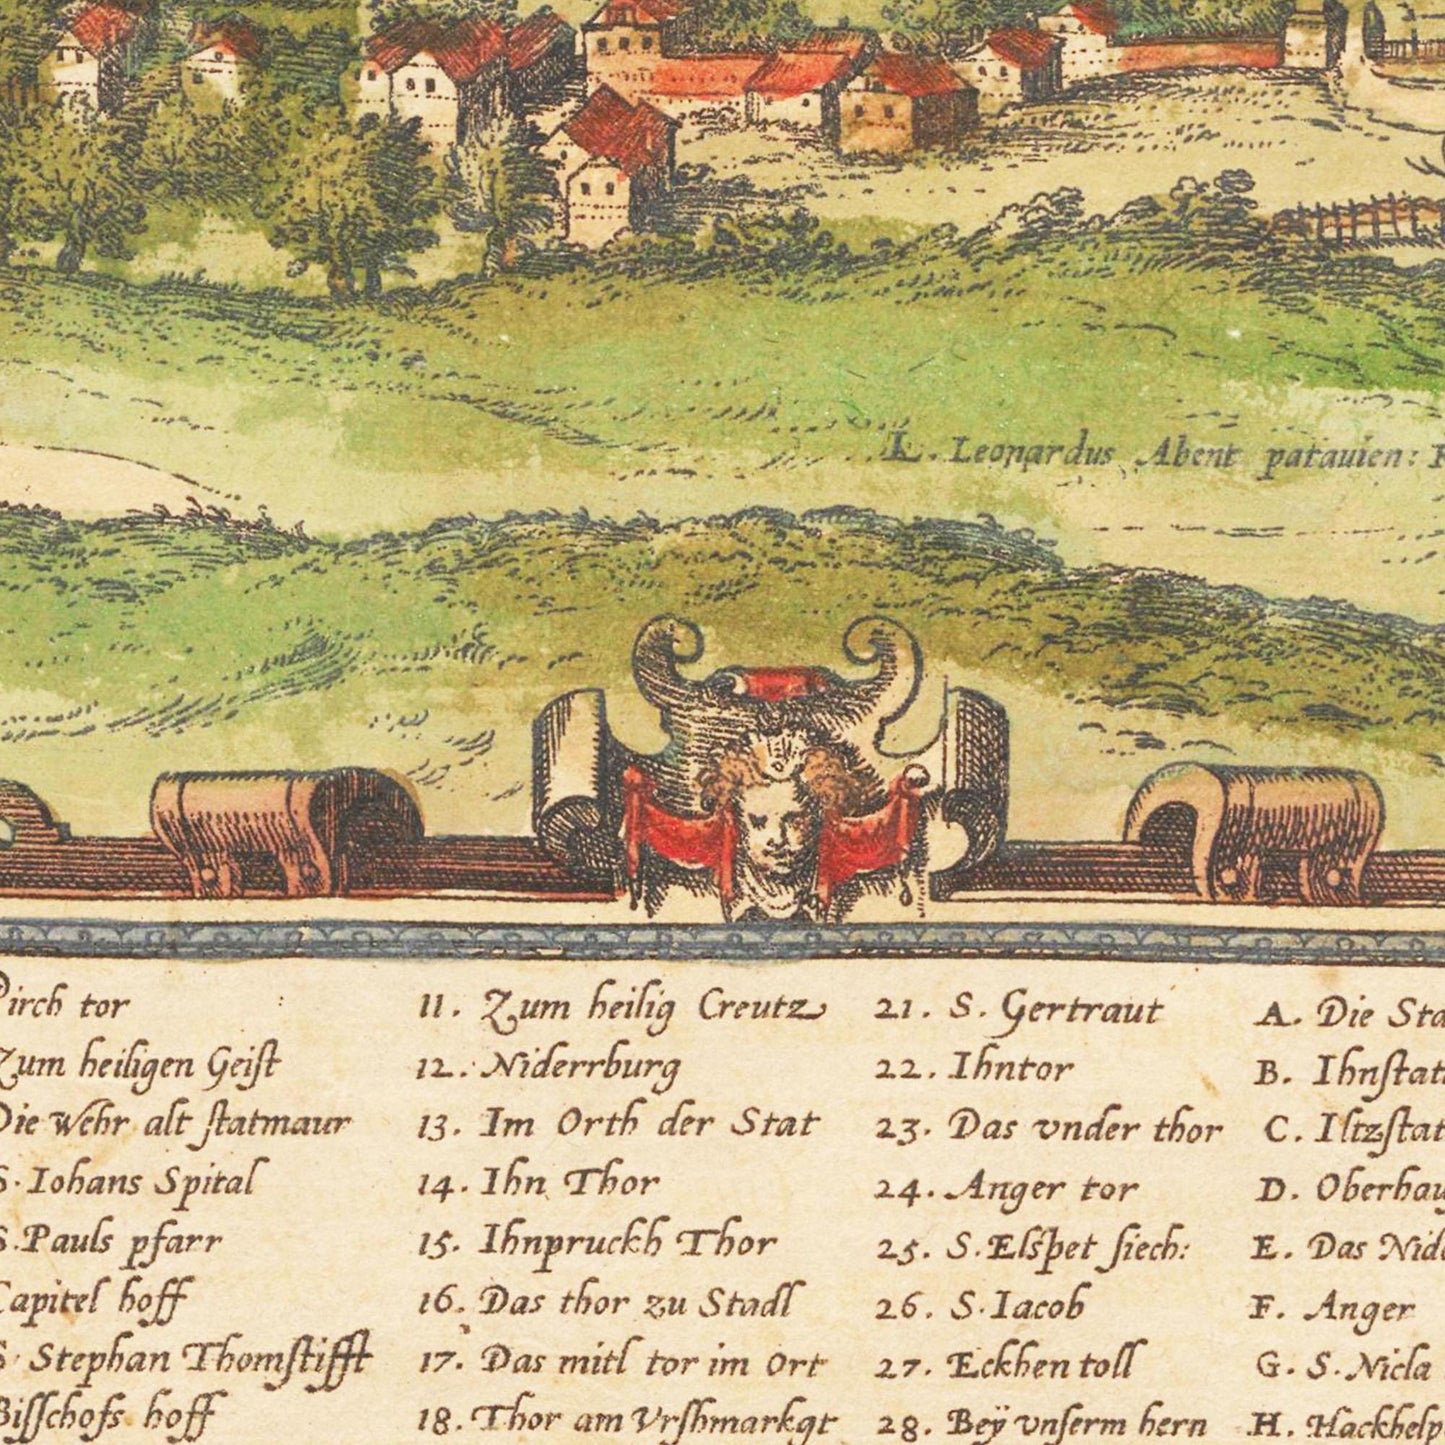 L. Leopardus Abent patauien:
Pirch tor
Zum heiligen Geiſt
Die Wehr alt ſtatmaur
S. Iohans Spital
S. Pauls pfarr
Capitel hoff
S. Stephan Thomſtifft
Biſſchofs hoff
11. Zum heilig Creutz
12. Niderrburg
13. Im Orth der Stat
14. Ihn Thor
15. Ihnpruckh Thor
16. Das thor zu Stadl
17. Das mitl tor im Ort
18. Thor am Vrſhmarkgt
21. S. Gertraut
22. Ihntor
23. Das vnder thor
24. Anger tor
25. S. Elſpet ſiech:
26. S. Iacob
27. Eckhen toll
28. Beÿ vnſerm hern
A. Die Sta
B. Ihnſtat
C. Iltzſtat
D. Oberhau
E. Das Nide
F. Anger
G. S. Nicla
H. Hackhelp